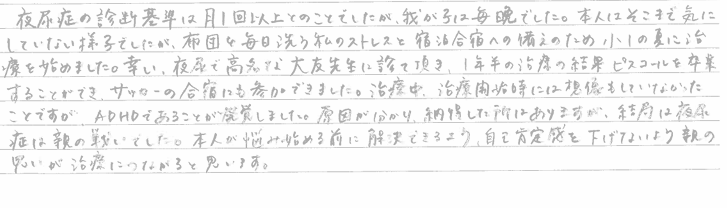 夜尿症の診断基準は月1回以上とのことでしたが、我が子は毎晩でした。本人はそこまで気に
していない様子でしたが、布団を毎日洗う私のストレスと宿泊合宿への備えのため、小1の夏に治
療を始めました。幸い、夜尿で高名な大友先生に診て頂き、1年半の治療の結果ピスコールを卒業
することができ、サッカーの合宿にも参加できました。治療中、治療開始時には想像もしていなかった
ことですが、ADHDであることが発覚しました。原因が分かり、納得した所はありますが、結局は夜尿
症は親の戦いでした。本人が悩み始める前に解決できるよう、自己肯定感を下げないよう親の
思いが治療につながると思います。